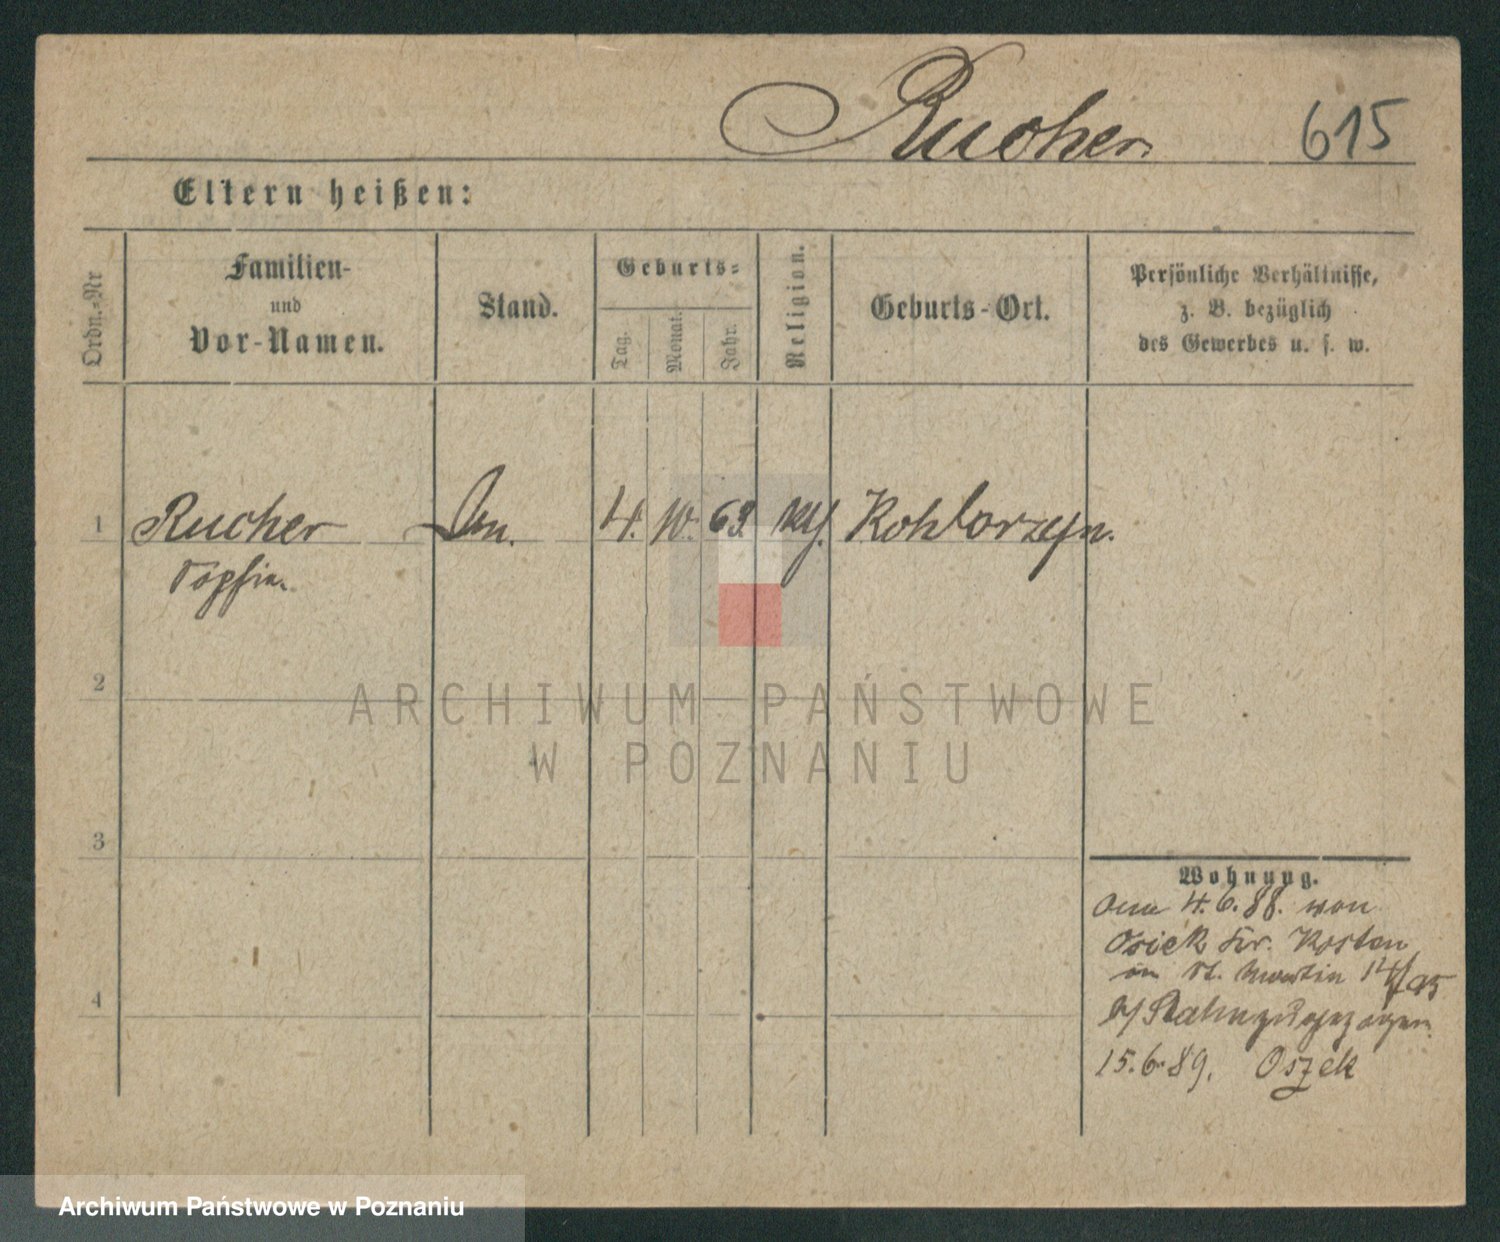 Rucher 615
Eltern heißen:
Ordn.-Nr
Familien-
und
Vor-Namen.
Stand.
Geburts-
Tag.
Monat.
Jahr.
Religion.
Geburts-Ort.
Persönliche Verhältnisse,
z. B. bezüglich
des Gewerbes u. s. w.
1 Rucher 4. 10. 69.
2
3
4
Wohnung.
4. 6. 88. von
Osiek Kr. Kosten
St. Martin 14/
zugezogen
15. 6. 89. Oszek
ARCHIWUM PAŃSTWOWE
W POZNANIU
Archiwum Państwowe w Poznaniu